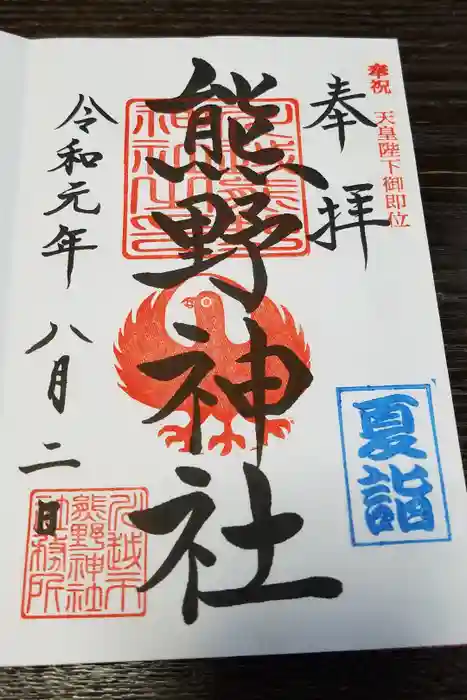 奉祝 天皇陛下御即位
奉拝
熊野神社
夏詣
令和元年 八月二日
川越市
熊野神社
社務所